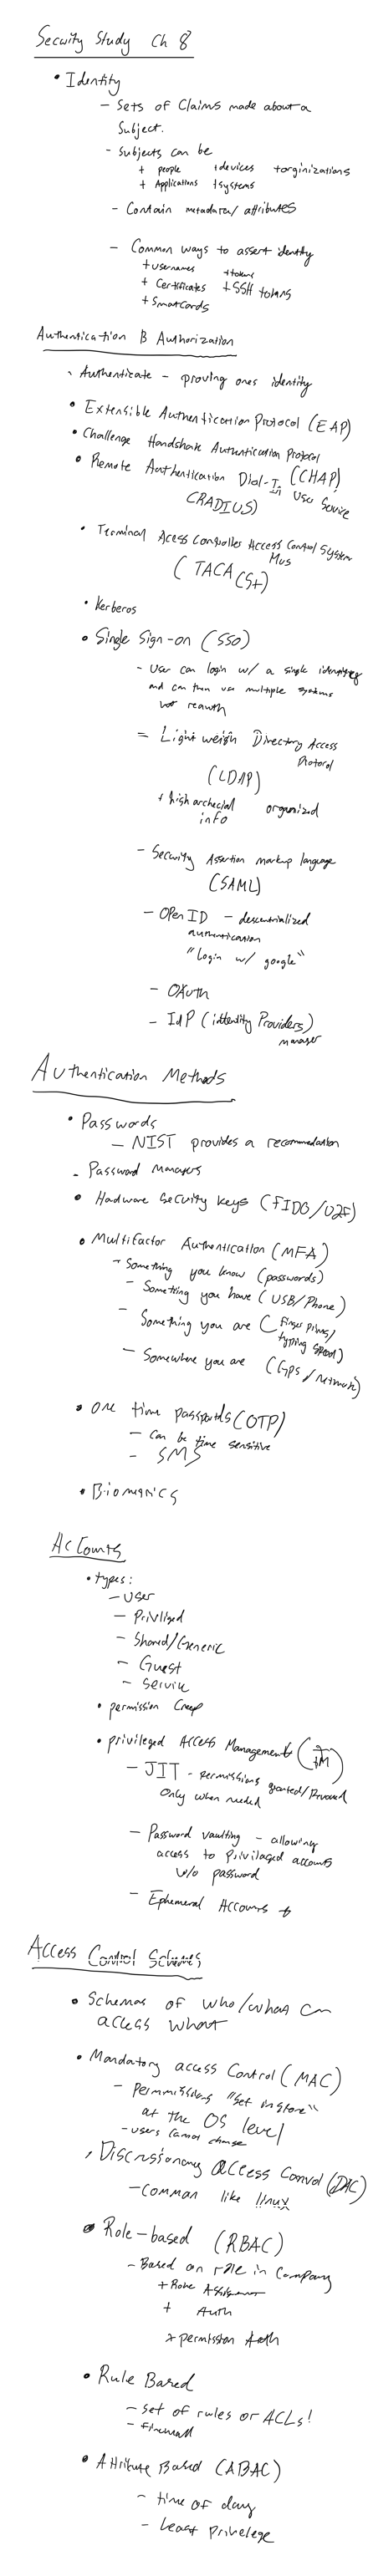 Security Study Ch 8
• Identity
- Sets of Claims made about a
Subject.
- Subjects can be
+ people + devices + orginizations
+ Applications + systems
- Contain metadata/attributes
- Common ways to assert identity
+ usernames + tokens
+ Certificates + SSH tokens
+ SmartCards
Authentication & Authorization
• Authenticate - proving ones identity
• Extensible Authentication Protocol (EAP)
• Challenge Handshake Authentication Protocol
(CHAP)
• Remote Authentication Dial-In User Service
(RADIUS)
• Terminal Access Controller Access Control System
Plus
(TACACS+)
• Kerberos
• Single Sign-on (SSO)
- User can login w/ a single identity
and can then use multiple systems
w/o reauth
- Lightweigh Directory Access
Protocol
(LDAP)
+ organized
info
- Security Assertion markup language
(SAML)
- Open ID - descentrialized
authentication
"Login w/ google"
- OAuth
- IdP (identity Providers)
manager
Authentication Methods
• Passwords
- NIST provides a recommendation
- Password Managers
• Hardware Security keys (FIDO/U2F)
• Multifactor Authentication (MFA)
- Something you know (passwords)
- Something you have (USB/Phone)
- Something you are (finger prints/
typing speed)
- Somewhere you are (GPS/network)
• One time passwords (OTP)
- Can be time sensitive
- SMS
• Biometrics
Accounts
• types:
- User
- Privliged
- Shared/Generic
- Guest
- Service
• permission Creep
• privileged Access Management (PAM)
- JIT - permissions granted/revoked
only when needed
- Password vaulting - allowing
access to privilaged accounts
w/o password
- Ephemeral Accounts
Access Control Schemes
• Schemas of who/what can
access what
• Mandatory access Control (MAC)
- permmissions "set in stone"
at the OS level
- users cannot change
• Discressionary access Control (DAC)
- common like linux
• Role-based (RBAC)
- Based on role in Company
+ Role Assignment
+ Auth
+ permission Auth
• Rule Based
- set of rules or ACLs!
- firewall
• Attribute Based (ABAC)
- time of day
- Least privelege